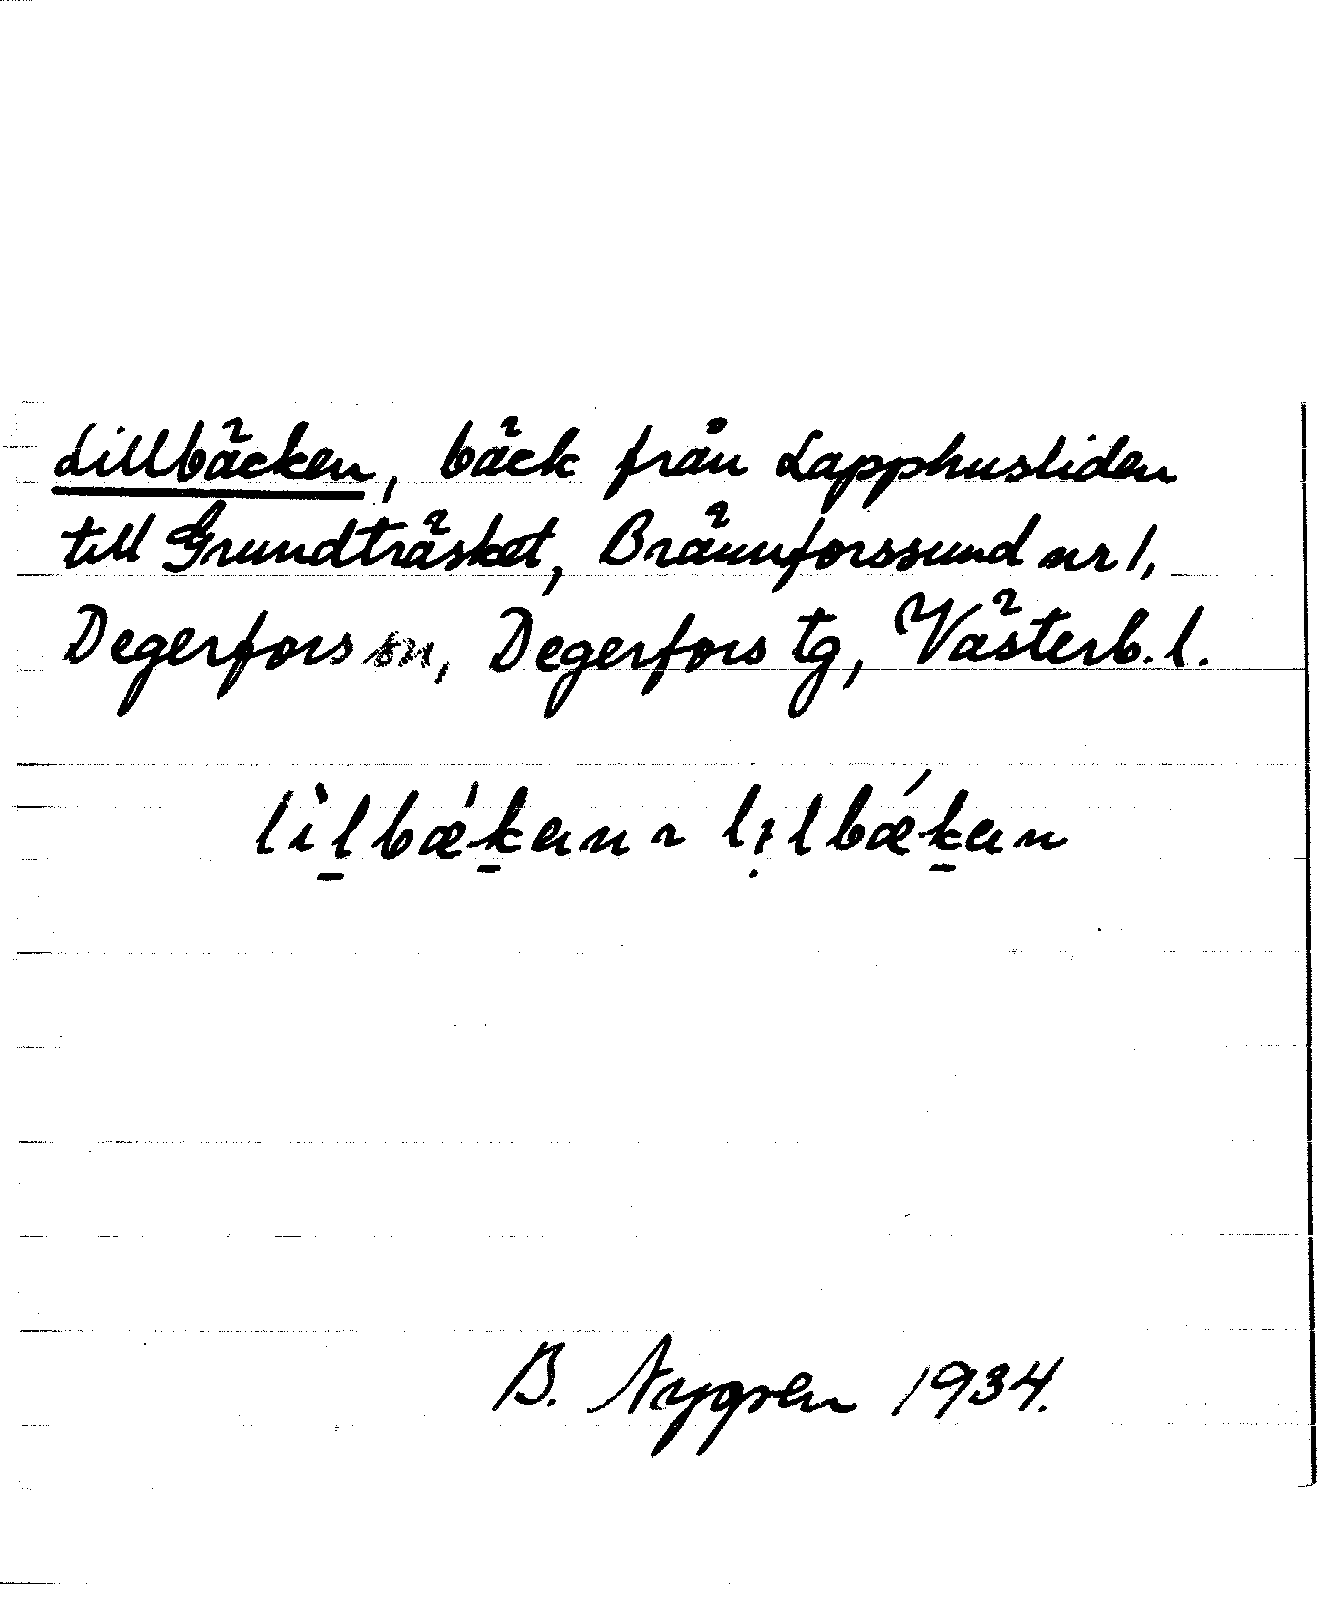 Lillbäcken, bäck från Lapphusliden
till Grundträsket, Brännforssund nr 1,
Degerfors sn, Degerfors tg, Västerb. l.
lìl̠bǽk̠en ~ lịlbǽk̠en
B. Nygren 1934.